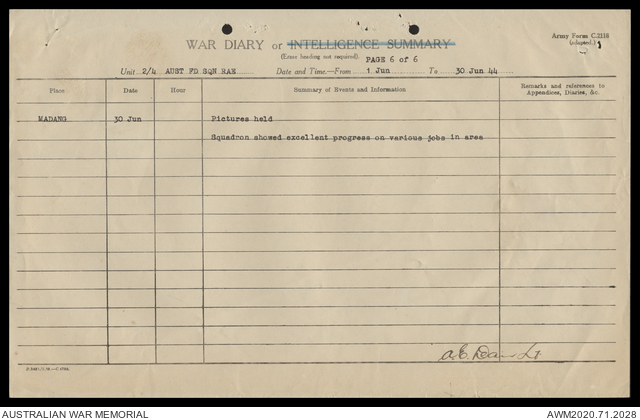 Army Form C.2118
(adapted.)
WAR DIARY or INTELLIGENCE SUMMARY
(Erase heading not required).
PAGE 6 of 6
Unit 2/4 AUST FD SQN RAE Date and Time.—From 1 Jun To 30 Jun 44
Place Date Hour Summary of Events and Information Remarks and references to Appendices, Diaries, &c.
MADANG 30 Jun Pictures held
Squadron showed excellent progress on various jobs in area
Lt.
AUSTRALIAN WAR MEMORIAL AWM2020.71.2028